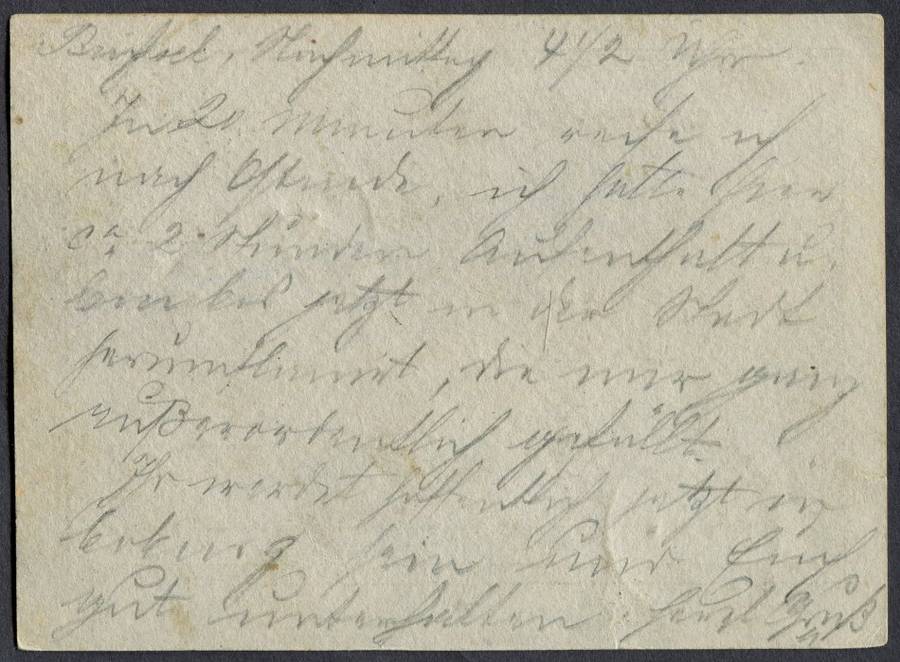 Brüssel, Nachmittag 4 1/2 Uhr.
In 20 Minuten reise ich
nach Ostende, ich hatte hier
ca 2 Stunden Aufenthalt u.
bin bis jetzt in der Stadt
herumflanirt, die mir ganz
außerordentlich gefällt.
Ihr werdet hoffentlich jetzt in
sein und Euch
gut unterhalten. Herzl Gruß